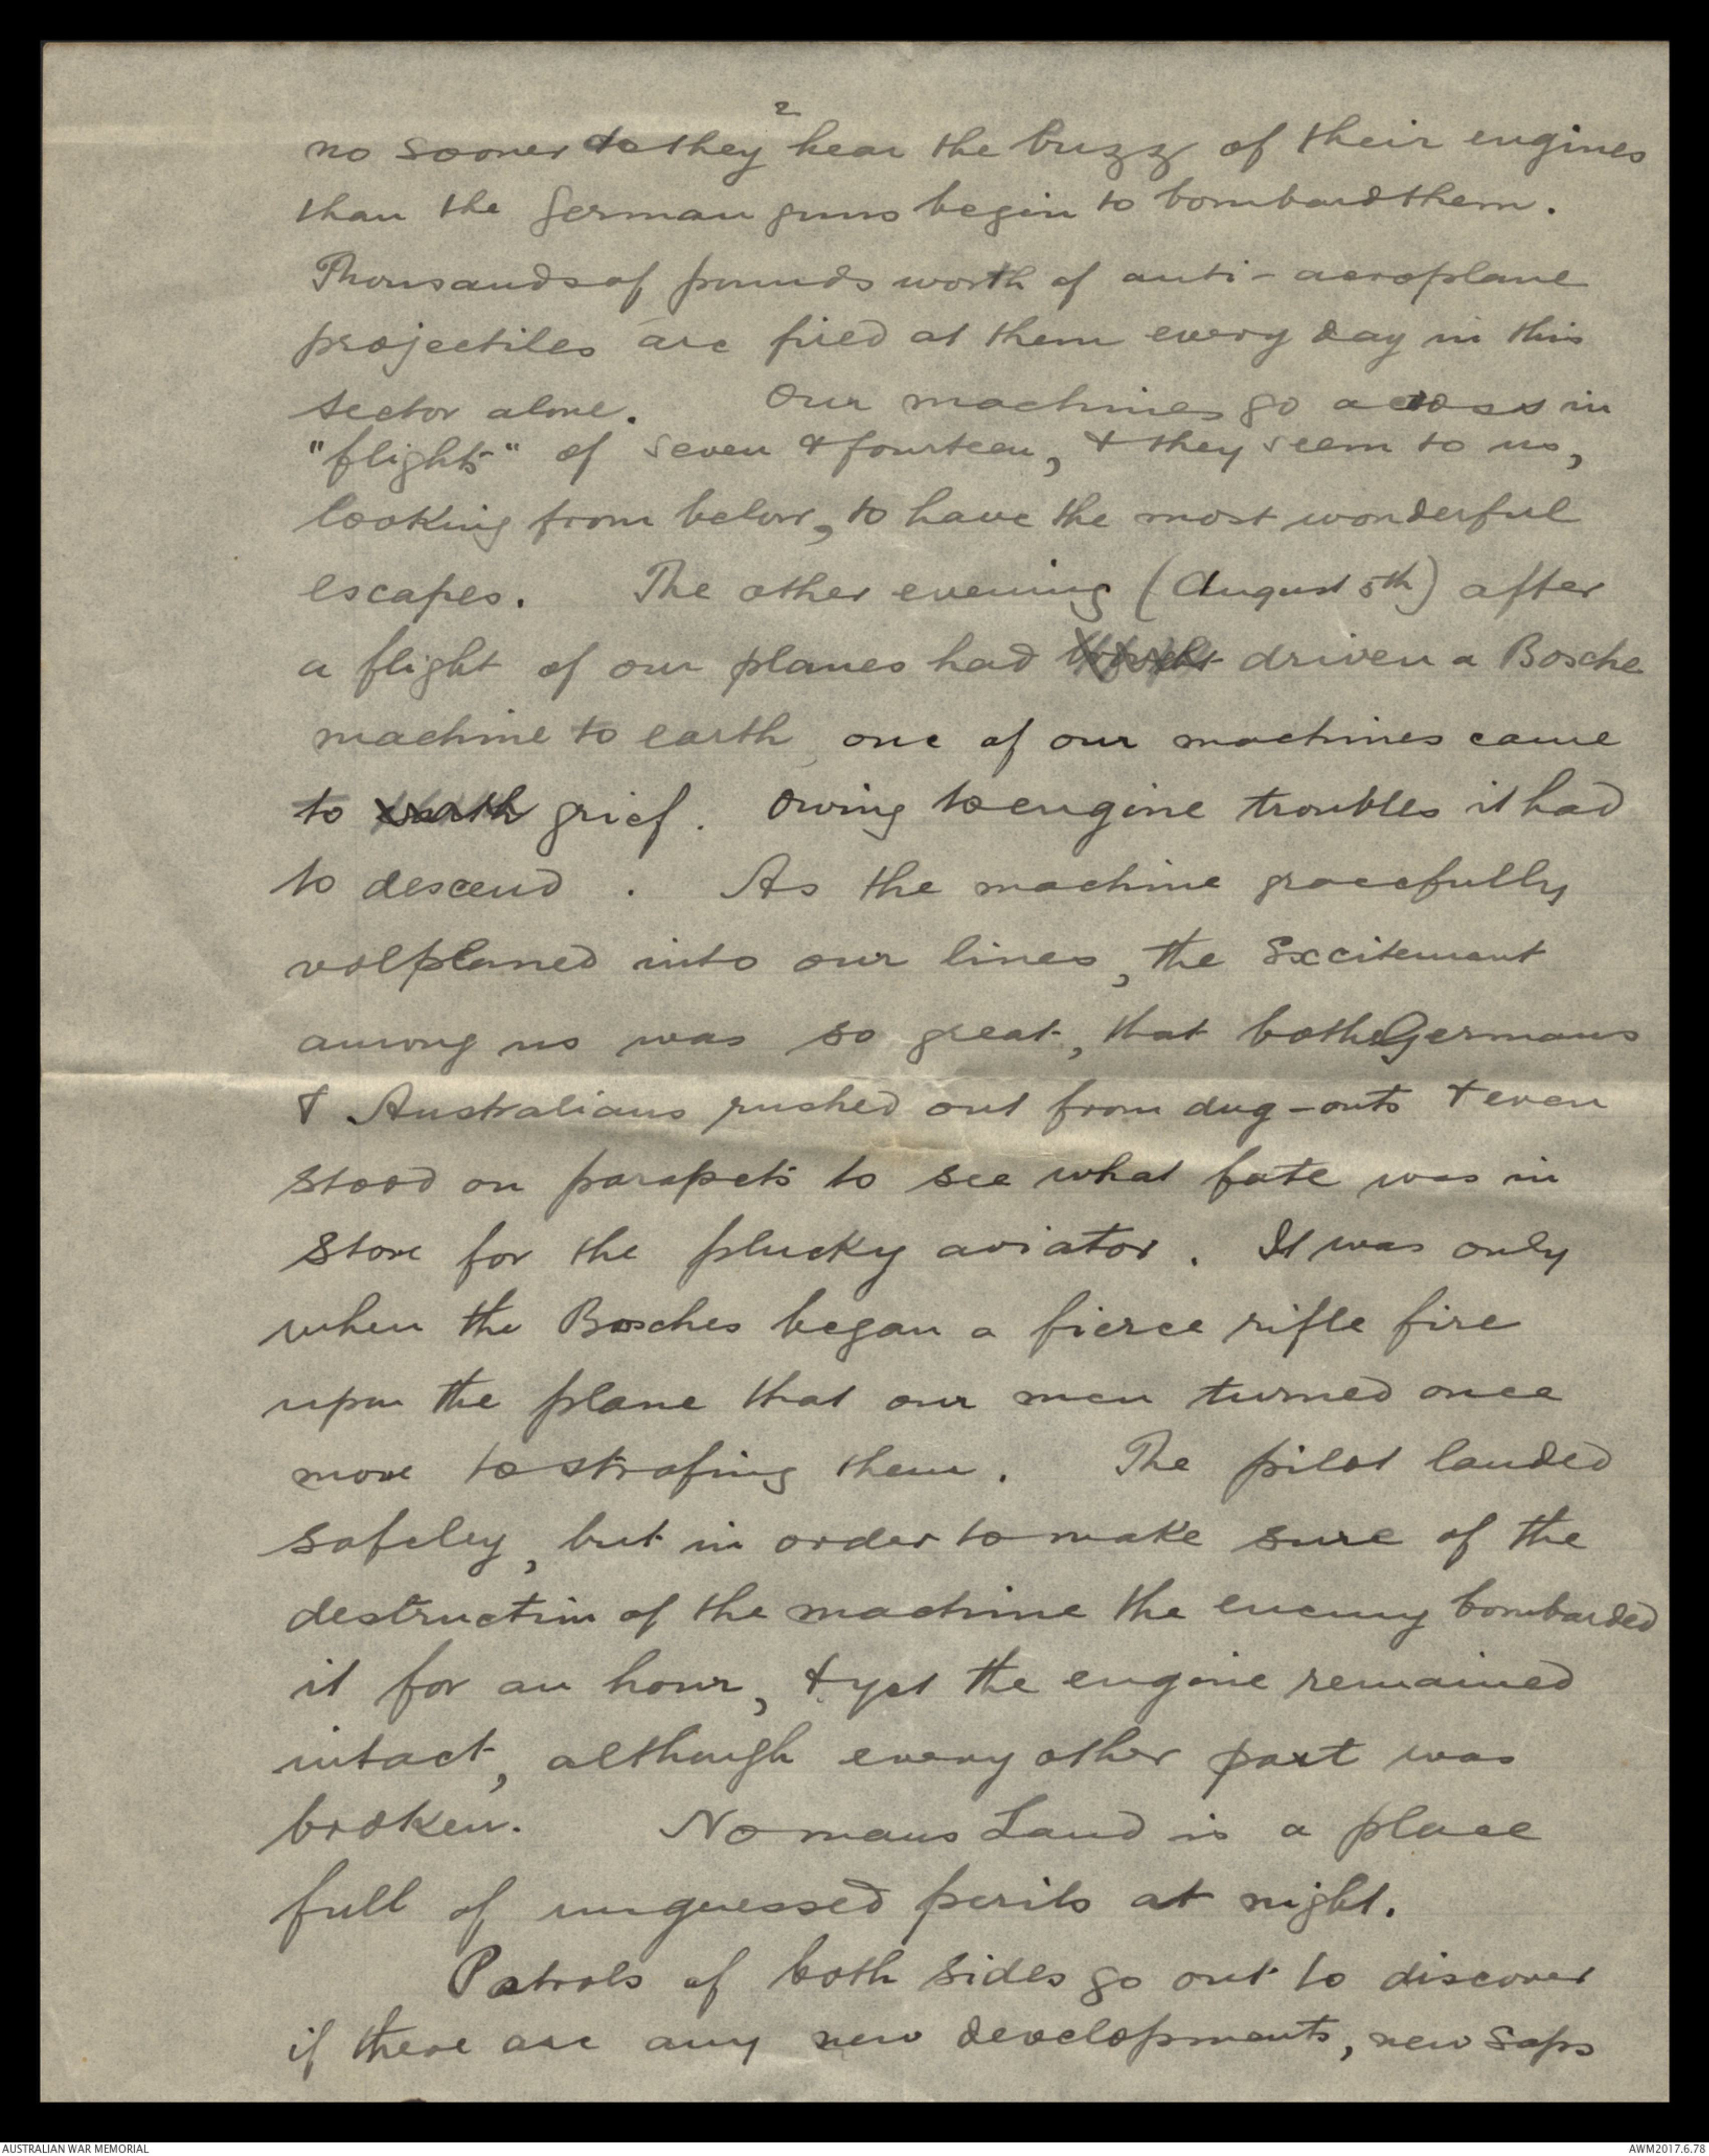 2
no sooner do they hear the buzz of their engines
than the German guns begin to bombard them.
Thousands of pounds worth of anti-aeroplane
projectiles are fired at them every day in this
sector alone. Our machines go across in
"flights" of seven & fourteen, & they seem to us,
looking from below, to have the most wonderful
escapes. The other evening (August 5th) after
a flight of our planes had driven a Bosche
machine to earth, one of our machines came
to earth grief. Owing to engine troubles it had
to descend. As the machine gracefully
volplaned into our lines, the Excitement
among us was so great, that both Germans
& Australians rushed out from dug-outs & even
stood on parapets to see what fate was in
store for the plucky aviator. It was only
when the Bosches began a fierce rifle fire
upon the plane that our men turned once
more to strafing them. The pilot landed
safeley, but in order to make sure of the
destruction of the machine the enemy bombarded
it for an hour, & yet the engine remained
intact, although every other part was
broken. No mans Land is a place
full of unguessed perils at night.
Patrols of both sides go out to discover
if there are any new developments, new saps
AUSTRALIAN WAR MEMORIAL
AWM2017.6.78